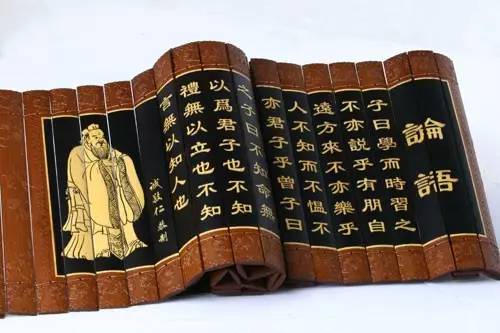 論語
子曰學而時習之
不亦說乎有朋自
遠方來不亦樂乎
人不知而不慍不
亦君子乎曾子曰
之子曰不知命無
以爲君子也不知
禮無以立也不知
言無以知人也